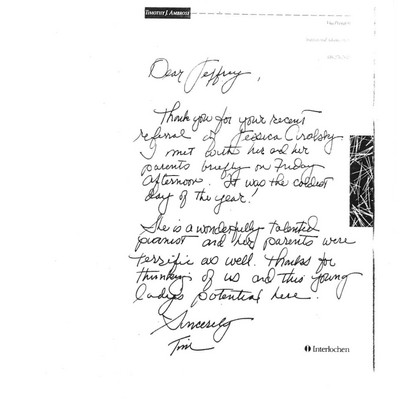 TIMOTHY J. AMBROSE
Dear Jeffrey,
Thank you for your recent
referral of Jessica
I met with her and her
parents briefly on Friday
afternoon. It was the coldest
day of the year!
She is a wonderfully talented
pianist and her parents were
terrific as well. Thanks for
thinking of us and this young
lady's potential here.
Sincerely
Tim
Interlochen